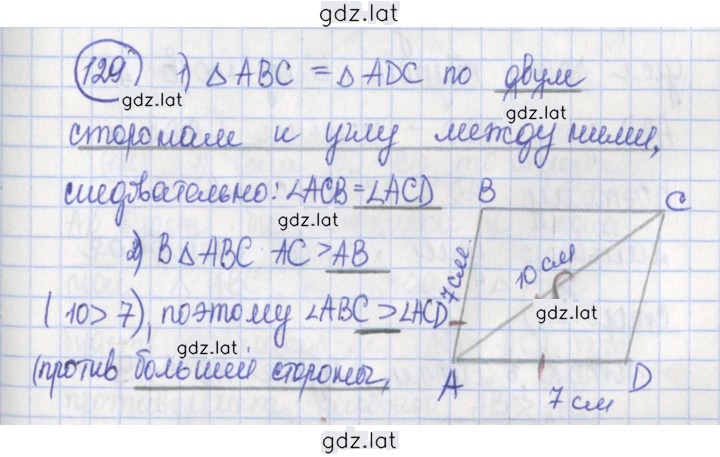 gdz.lat
129 1) △ABC = △ADC по двум
gdz.lat
сторонам и углу между ними,
следовательно: ∠ACB = ∠ACD
gdz.lat
B
C
2) В △ABC AC > AB
7 см
10 см
(10 > 7), поэтому ∠ABC > ∠ACD
gdz.lat
gdz.lat
(против большей стороны,
A
D
7 см
gdz.lat